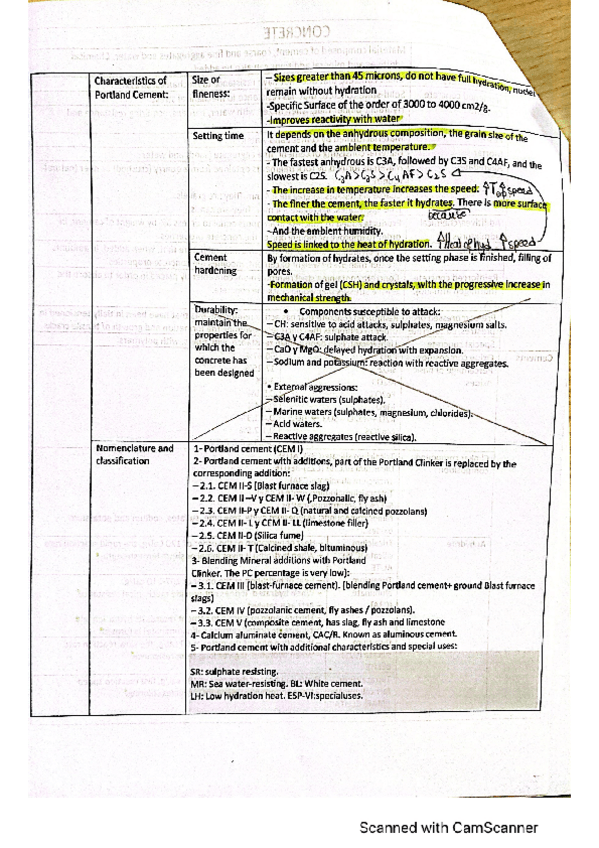 CONCRETE
Characteristics of Portland Cement:
Size or fineness:
- Sizes greater than 45 microns, do not have full hydration, nuclei
remain without hydration
-Specific Surface of the order of 3000 to 4000 cm2/g.
-Improves reactivity with water
Setting time
It depends on the anhydrous composition, the grain size of the
cement and the ambient temperature.
- The fastest anhydrous is C3A, followed by C3S and C4AF, and the
slowest is C2S. C3A > C3S > C4AF > C2S
- The increase in temperature increases the speed. ↑Tª ↑speed
- The finer the cement, the faster it hydrates. There is more surface
contact with the water. because
-And the ambient humidity.
Speed is linked to the heat of hydration. ↑Heat of hyd ↑speed
Cement hardening
By formation of hydrates, once the setting phase is finished, filling of
pores.
-Formation of gel (CSH) and crystals, with the progressive increase in
mechanical strength.
Durability:
maintain the
properties for
which the
concrete has
been designed
• Components susceptible to attack:
– CH: sensitive to acid attacks, sulphates, magnesium salts.
– C3A y C4AF: sulphate attack.
– CaO y MgO: delayed hydration with expansion.
– Sodium and potassium: reaction with reactive aggregates.
• External aggressions:
– Selenitic waters (sulphates).
– Marine waters (sulphates, magnesium, chlorides).
– Acid waters.
– Reactive aggregates (reactive silica).
Nomenclature and
classification
1- Portland cement (CEM I)
2- Portland cement with additions, part of the Portland Clinker is replaced by the
corresponding addition:
– 2.1. CEM II-S (Blast furnace slag)
– 2.2. CEM II –V y CEM II- W (,Pozzonalic, fly ash)
– 2.3. CEM II-P y CEM II- Q (natural and calcined pozzolans)
– 2.4. CEM II- L y CEM II- LL (limestone filler)
– 2.5. CEM II-D (Silica fume)
– 2.6. CEM II- T (Calcined shale, bituminous)
3- Blending Mineral additions with Portland
Clinker. The PC percentage is very low):
– 3.1. CEM III (blast-furnace cement). (blending Portland cement+ ground Blast furnace
slags)
– 3.2. CEM IV (pozzolanic cement, fly ashes / pozzolans).
– 3.3. CEM V (composite cement, has slag, fly ash and limestone
4- Calcium aluminate cement, CAC/R. Known as aluminous cement.
5- Portland cement with additional characteristics and special uses:
SR: sulphate resisting.
MR: Sea water-resisting. BL: White cement.
LH: Low hydration heat. ESP-VI:specialuses.
Scanned with CamScanner